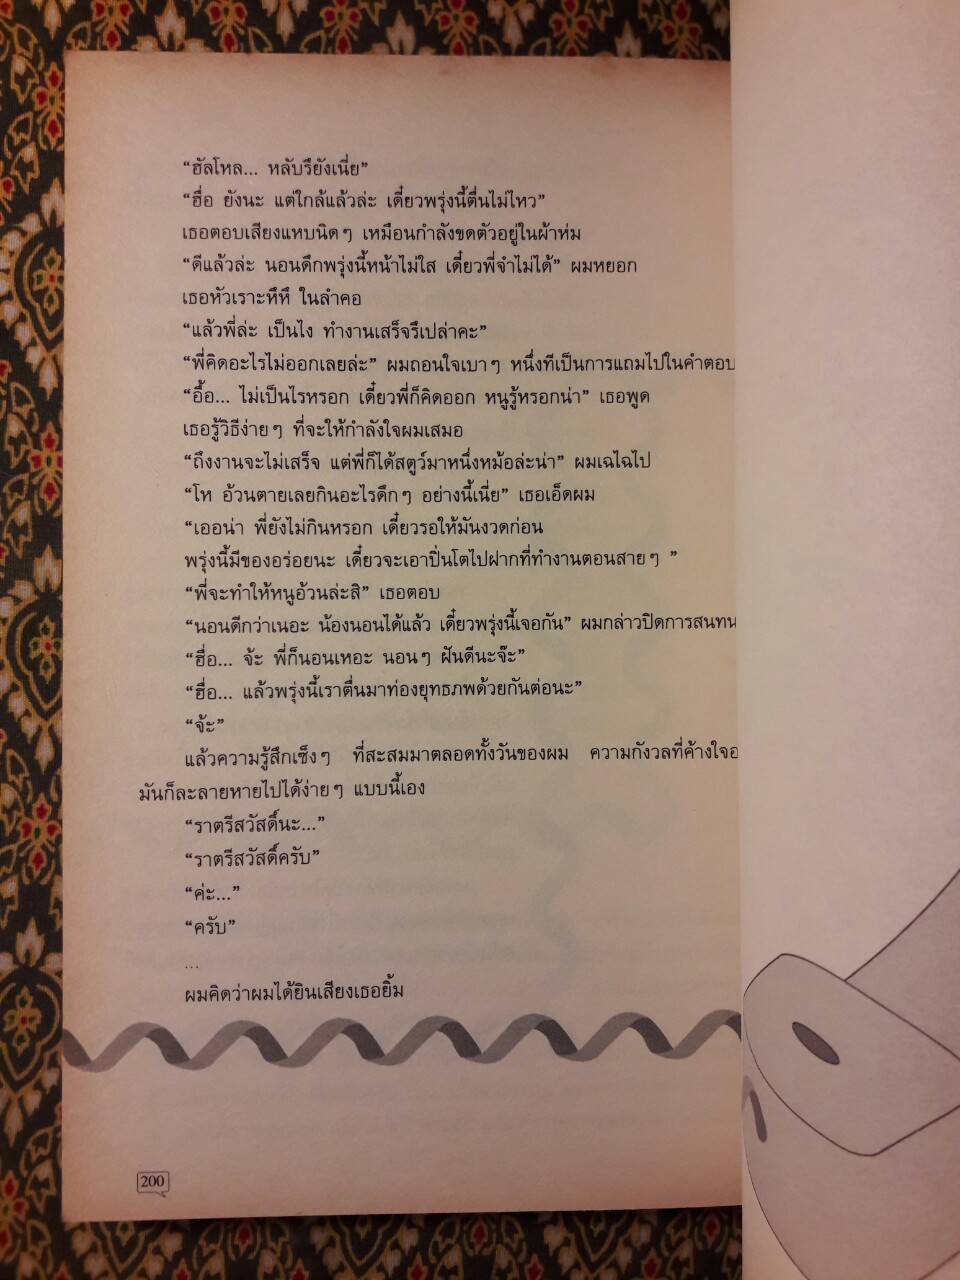 “ฮัลโหล... หลับรึยังเนี่ย”
“ฮื่อ ยังนะ แต่ใกล้แล้วล่ะ เดี๋ยวพรุ่งนี้ตื่นไม่ไหว”
เธอตอบเสียงแหบนิดๆ เหมือนกำลังขดตัวอยู่ในผ้าห่ม
“ดีแล้วล่ะ นอนดึกพรุ่งนี้หน้าไม่ใส เดี๋ยวพี่จำไม่ได้” ผมหยอก
เธอหัวเราะหึหึ ในลำคอ
“แล้วพี่ล่ะ เป็นไง ทำงานเสร็จรึเปล่าคะ”
“พี่คิดอะไรไม่ออกเลยล่ะ” ผมถอนใจเบาๆ หนึ่งทีเป็นการแถมไปในคำตอบ
“อื้อ... ไม่เป็นไรหรอก เดี๋ยวพี่ก็คิดออก หนูรู้หรอกน่า” เธอพูด
เธอรู้วิธีง่ายๆ ที่จะให้กำลังใจผมเสมอ
“ถึงงานจะไม่เสร็จ แต่พี่ก็ได้สตูว์มาหนึ่งหม้อล่ะน่า” ผมเฉไฉไป
“โห อ้วนตายเลยกินอะไรดึกๆ อย่างนี้เนี่ย” เธอเอ็ดผม
“เออน่า พี่ยังไม่กินหรอก เดี๋ยวรอให้มันงวดก่อน
พรุ่งนี้มีของอร่อยนะ เดี๋ยวจะเอาปิ่นโตไปฝากที่ทำงานตอนสายๆ ”
“พี่จะทำให้หนูอ้วนล่ะสิ” เธอตอบ
“นอนดีกว่าเนอะ น้องนอนได้แล้ว เดี๋ยวพรุ่งนี้เจอกัน” ผมกล่าวปิดการสนทน
“ฮื่อ... จ้ะ พี่ก็นอนเหอะ นอนๆ ฝันดีนะจ๊ะ”
“ฮื่อ... แล้วพรุ่งนี้เราตื่นมาท่องยุทธภพด้วยกันต่อนะ”
“จ้ะ”
แล้วความรู้สึกเซ็งๆ ที่สะสมมาตลอดทั้งวันของผม ความกังวลที่ค้างใจอ
มันก็ละลายหายไปได้ง่ายๆ แบบนี้เอง
“ราตรีสวัสดิ์นะ...”
“ราตรีสวัสดิ์ครับ”
“ค่ะ...”
“ครับ”
...
ผมคิดว่าผมได้ยินเสียงเธอยิ้ม
200